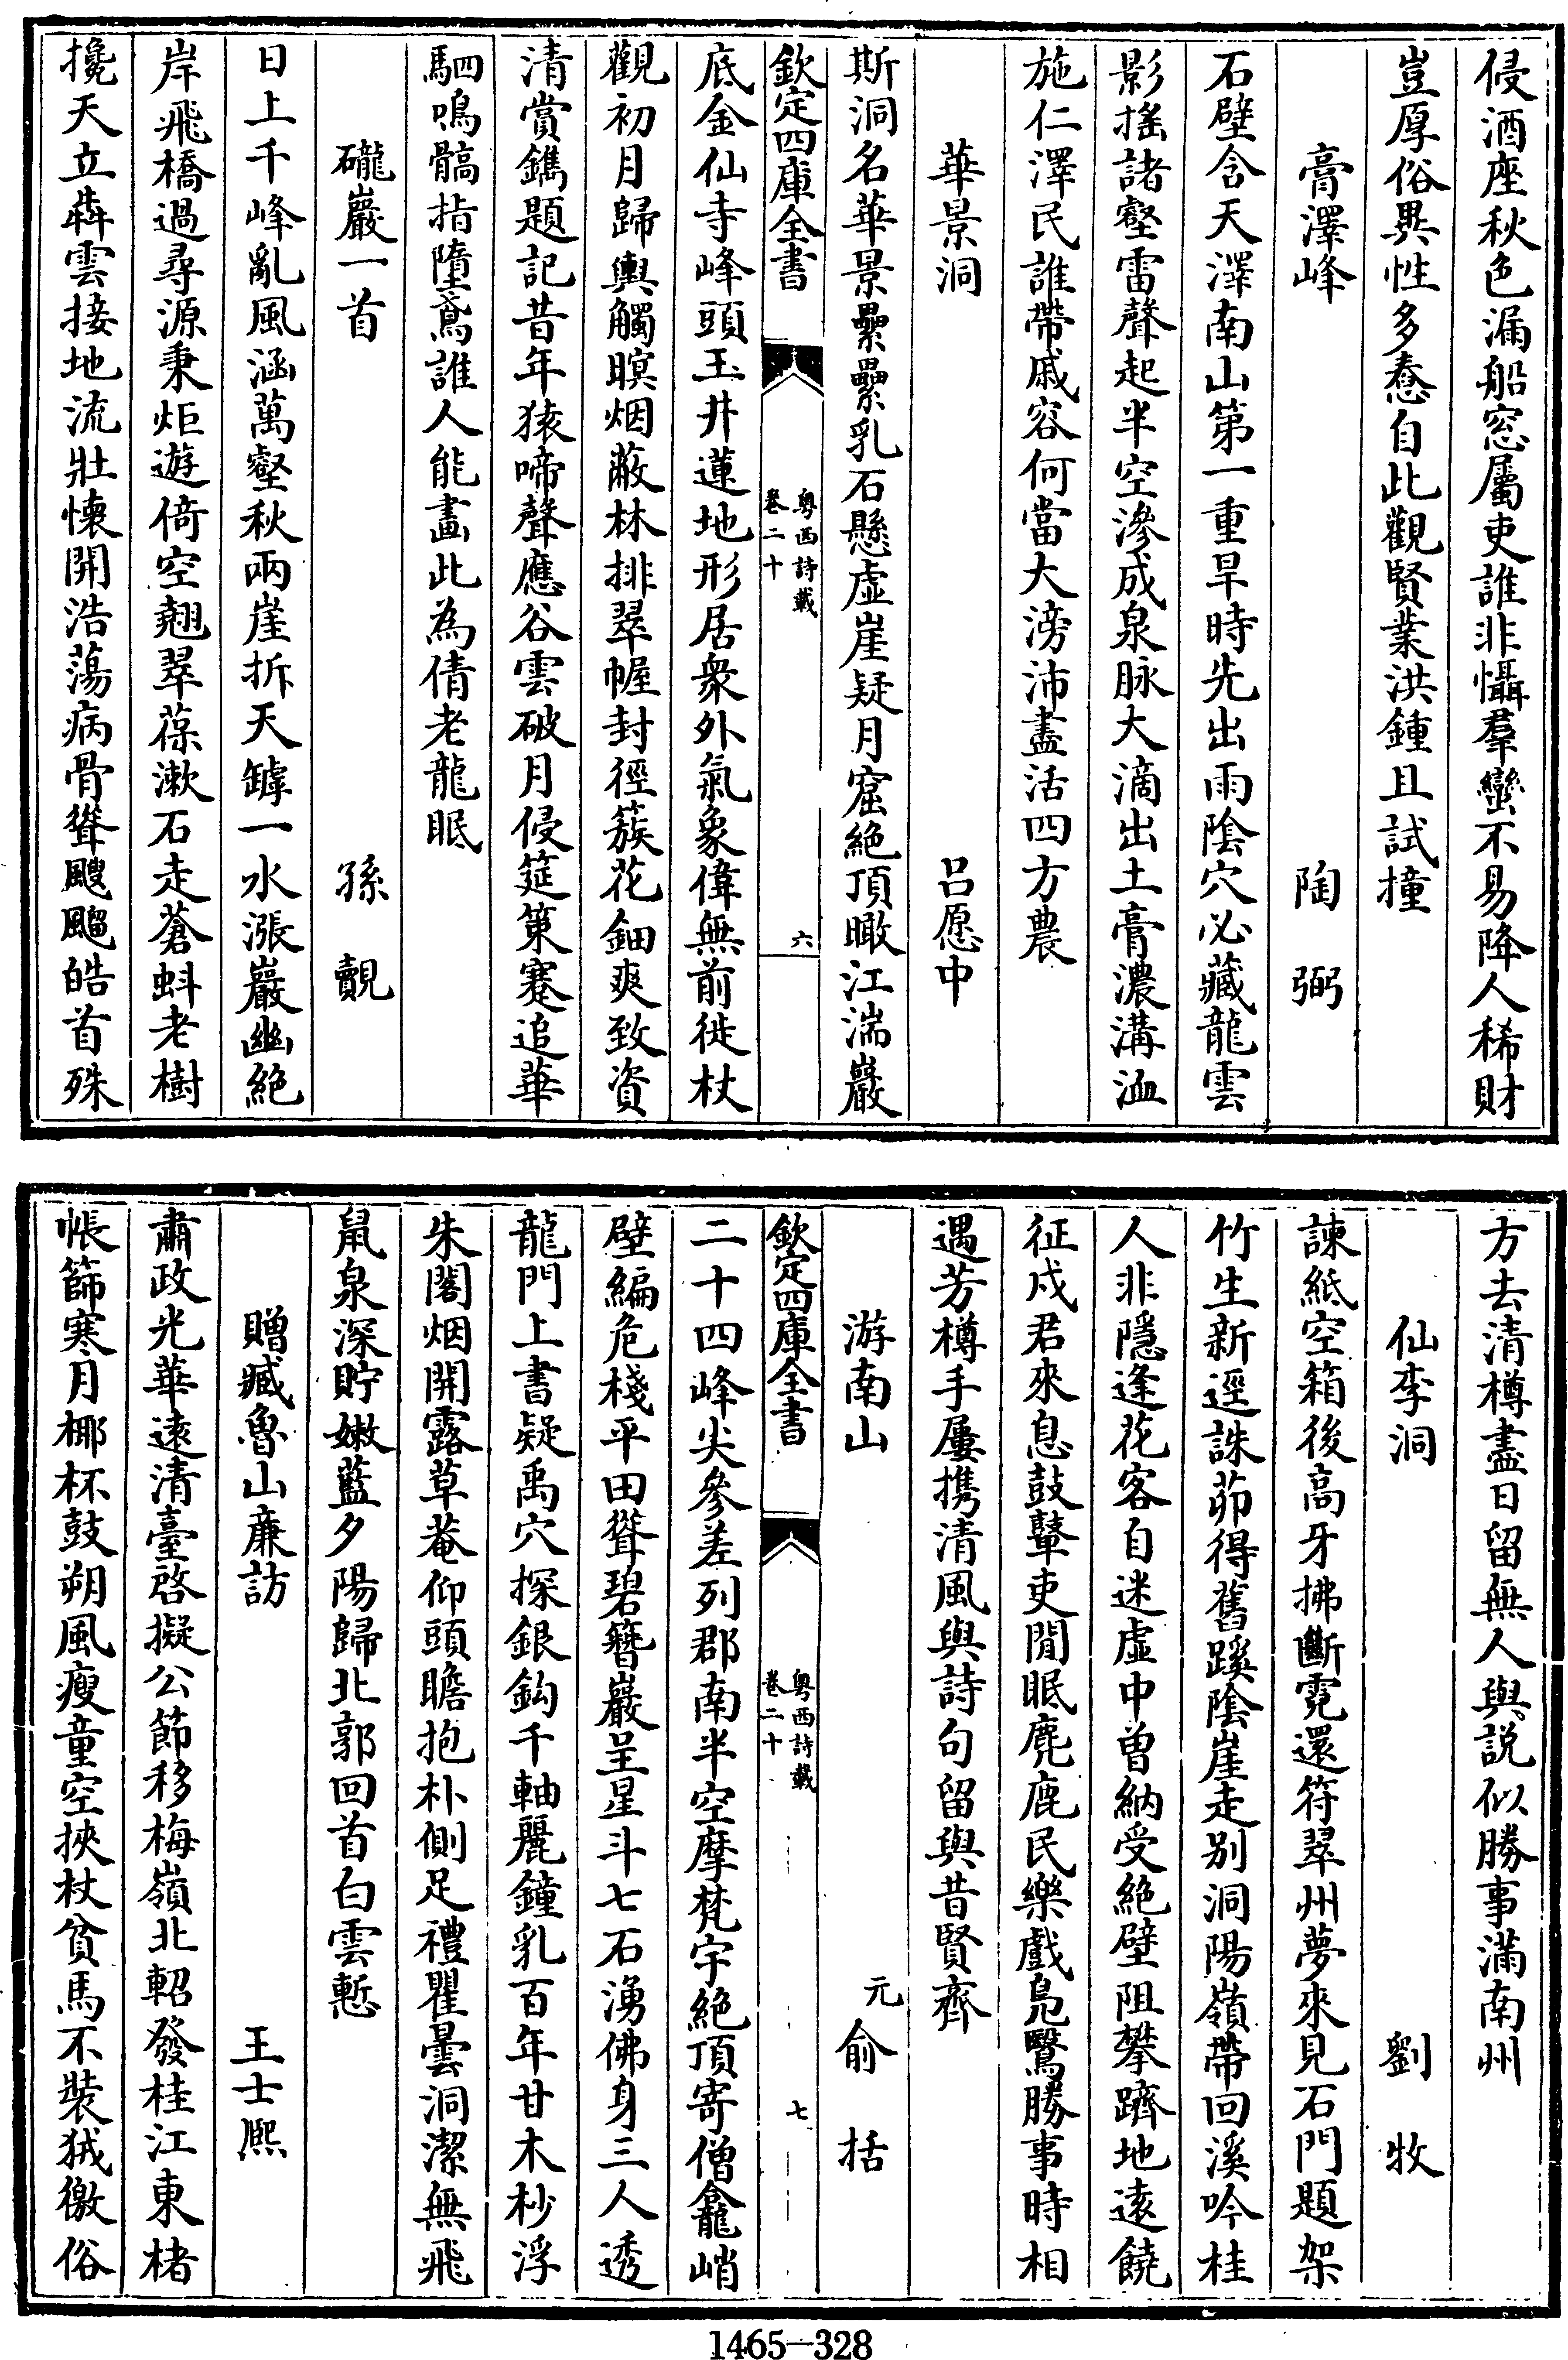 侵酒座秋色漏船窓屬吏誰非懾羣蠻不易降人稀財
豈厚俗異性多憃自此觀賢業洪鍾且試撞
膏澤峰 陶弼
石壁含天澤南山第一重旱時先出雨陰穴必藏龍雲
影搖諸壑雷聲起半空滲成泉脉大滴出土膏濃溝洫
施仁澤民誰帶戚容何當大滂沛盡活四方農
華景洞 吕愿中
斯洞名華景纍纍乳石懸虚崖疑月窟絶頂瞰江湍巖
欽定四庫全書 粤西詩載 卷二十 六
底金仙寺峰頭玉井蓮地形居衆外氣象偉無前徙杖
觀初月歸輿觸暝烟蔽林排翠幄封徑簇花鈿爽致資
清賞鐫題記昔年猿啼聲應谷雲破月侵筵策蹇追華
駟鳴髇指墮鳶誰人能畫此為倩老龍眠
龍巖一首 孫覿
日上千峰亂風涵萬壑秋兩崖拆天罅一水漲巖幽絶
岸飛橋過尋源秉炬遊倚空翹翠葆漱石走蒼蚪老樹
攙天立犇雲接地流壯懷開浩蕩病骨聳颼飀皓首殊
方去清樽盡日留無人與説似勝事滿南州
仙李洞 劉牧
諫紙空箱後高牙拂斷霓還符翠州夢來見石門題架
竹生新逕誅茆得舊蹊陰崖走别洞陽嶺帶回溪吟桂
人非隱逢花客自迷虚中曽納受絶壁阻攀躋地遠饒
征戍君來息鼓鼙吏閒眠麂鹿民樂戲鳬鷖勝事時相
遇芳樽手屢携清風與詩句留與昔賢齊
游南山 元俞括
欽定四庫全書 粤西詩載 卷二十 七
二十四峰尖參差列郡南半空摩梵宇絶頂寄僧龕峭
壁編危棧平田聳碧簪巖呈星斗七石湧佛身三人透
龍門上書疑禹穴探銀鈎千軸麗鐘乳百年甘木杪浮
朱閣烟開露草菴仰頭瞻抱朴側足禮瞿曇洞潔無飛
鼠泉深貯嫩藍夕陽歸北郭回首白雲慙
贈臧魯山亷訪 王士熈
肅政光華遠清臺啓擬公節移梅嶺北軺發桂江東楮
帳篩寒月椰杯鼓朔風瘦童空挾杖貧馬不裝狨徼俗
1465-328